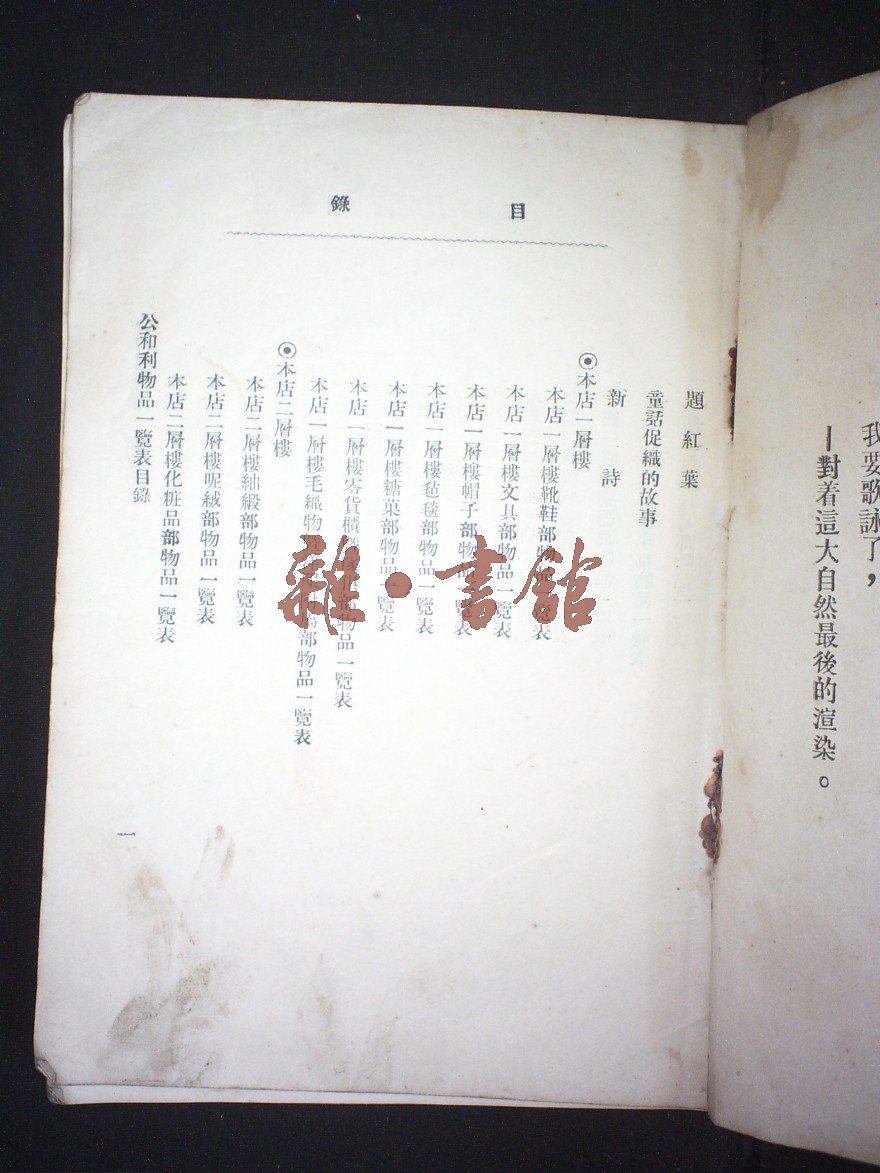 我要歌詠了，
—對着這大自然最後的渲染。
目錄
題紅葉
童話促織的故事
新詩
⦿本店一層樓
本店一層樓靴鞋部物品一覽表
本店一層樓文具部物品一覽表
本店一層樓帽子部物品一覽表
本店一層樓毡毯部物品一覽表
本店一層樓糖菓部物品一覽表
本店一層樓零貨櫃 部物品一覽表
本店一層樓毛織物 部物品一覽表
⦿本店二層樓
本店二層樓紬緞部物品一覽表
本店二層樓呢絨部物品一覽表
本店二層樓化粧品部物品一覽表
公和利物品一覽表目錄
一
雜·書館